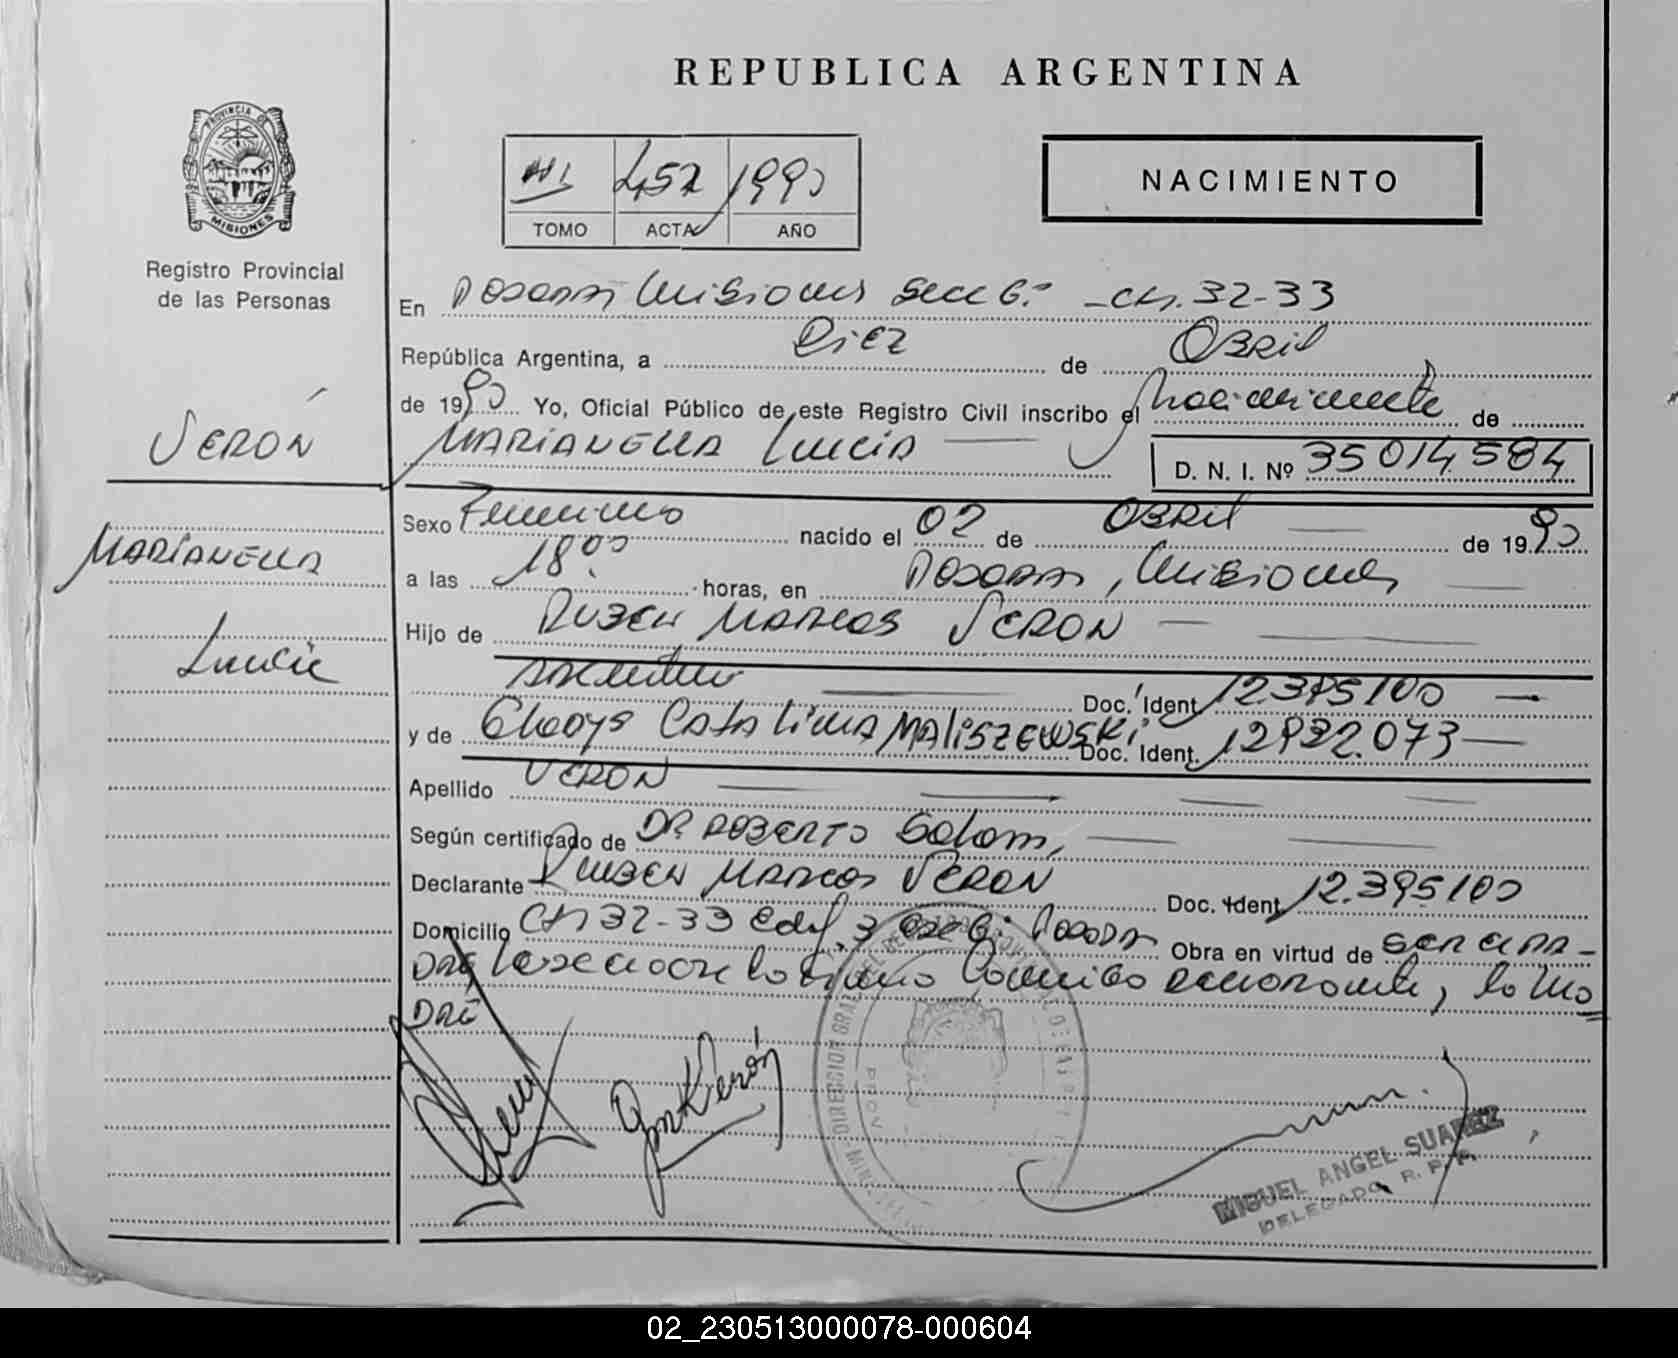 REPUBLICA ARGENTINA
PROVINCIA DE
MISIONES
Registro Provincial
de las Personas
1990
TOMO ACTA AÑO
NACIMIENTO
En Posadas Misiones Secc 6.ª - Ch. 32-33
República Argentina, a Diez de Abril
de 1990 Yo, Oficial Público de este Registro Civil inscribo el Nacimiento de
MARIANELLA Lucía D. N. I. Nº 35014584
VERÓN
Sexo Femenino nacido el 02 de Abril de 1990
MARIANELLA
a las 18⁰⁰ horas, en Posadas, Misiones
Hijo de Ruben Marcos VERON
Lucía
Argentino Doc. Ident. 12395100
y de Gladys Catalina MALiSZEWSKi Doc. Ident. 12922.073
Apellido VERON
Según certificado de DR ROBERTO
Declarante Ruben Marcos VERON Doc. Ident. 12.395100
Domicilio Ch 32-33 Edif. 3 Posadas Obra en virtud de ser el PA-
DRE
DRE
Verón
MIGUEL ANGEL SUAREZ
DELEGADO R. P. P.
02_230513000078-000604